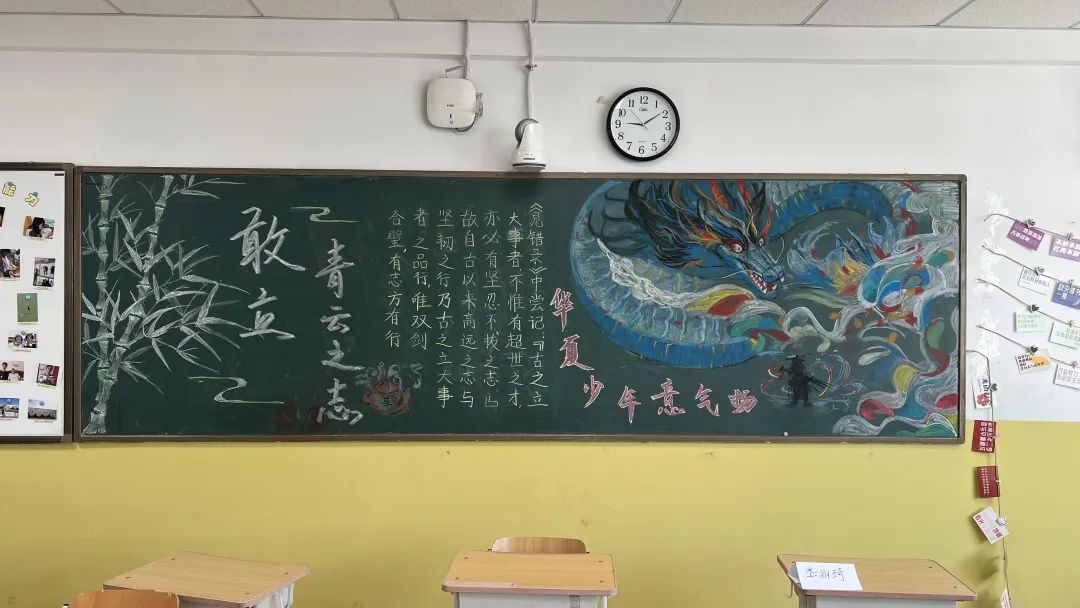 能力
敢立
青云之志
《晁错录》中尝记『古之立
大事者,不惟有超世之才,
亦必有坚忍不拔之志』
故自古以来高远之志与
坚韧之行乃古之立大事
者之品行,唯双剑
合璧有志方有行
华夏少年意气扬
12
1
2
3
4
5
6
7
8
9
10
11